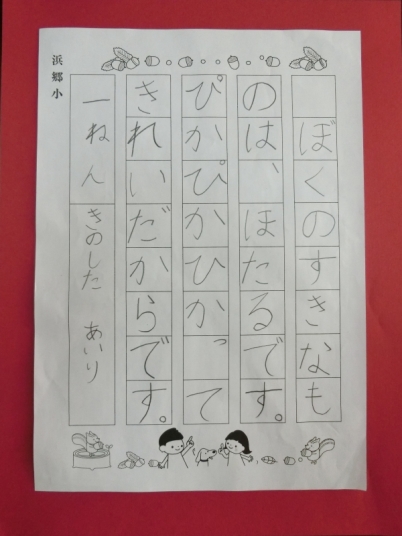 ぼくのすきなも
のは、ほたるです。
ぴかぴかひかって
きれいだからです。
一ねん きのした あいり
浜郷小